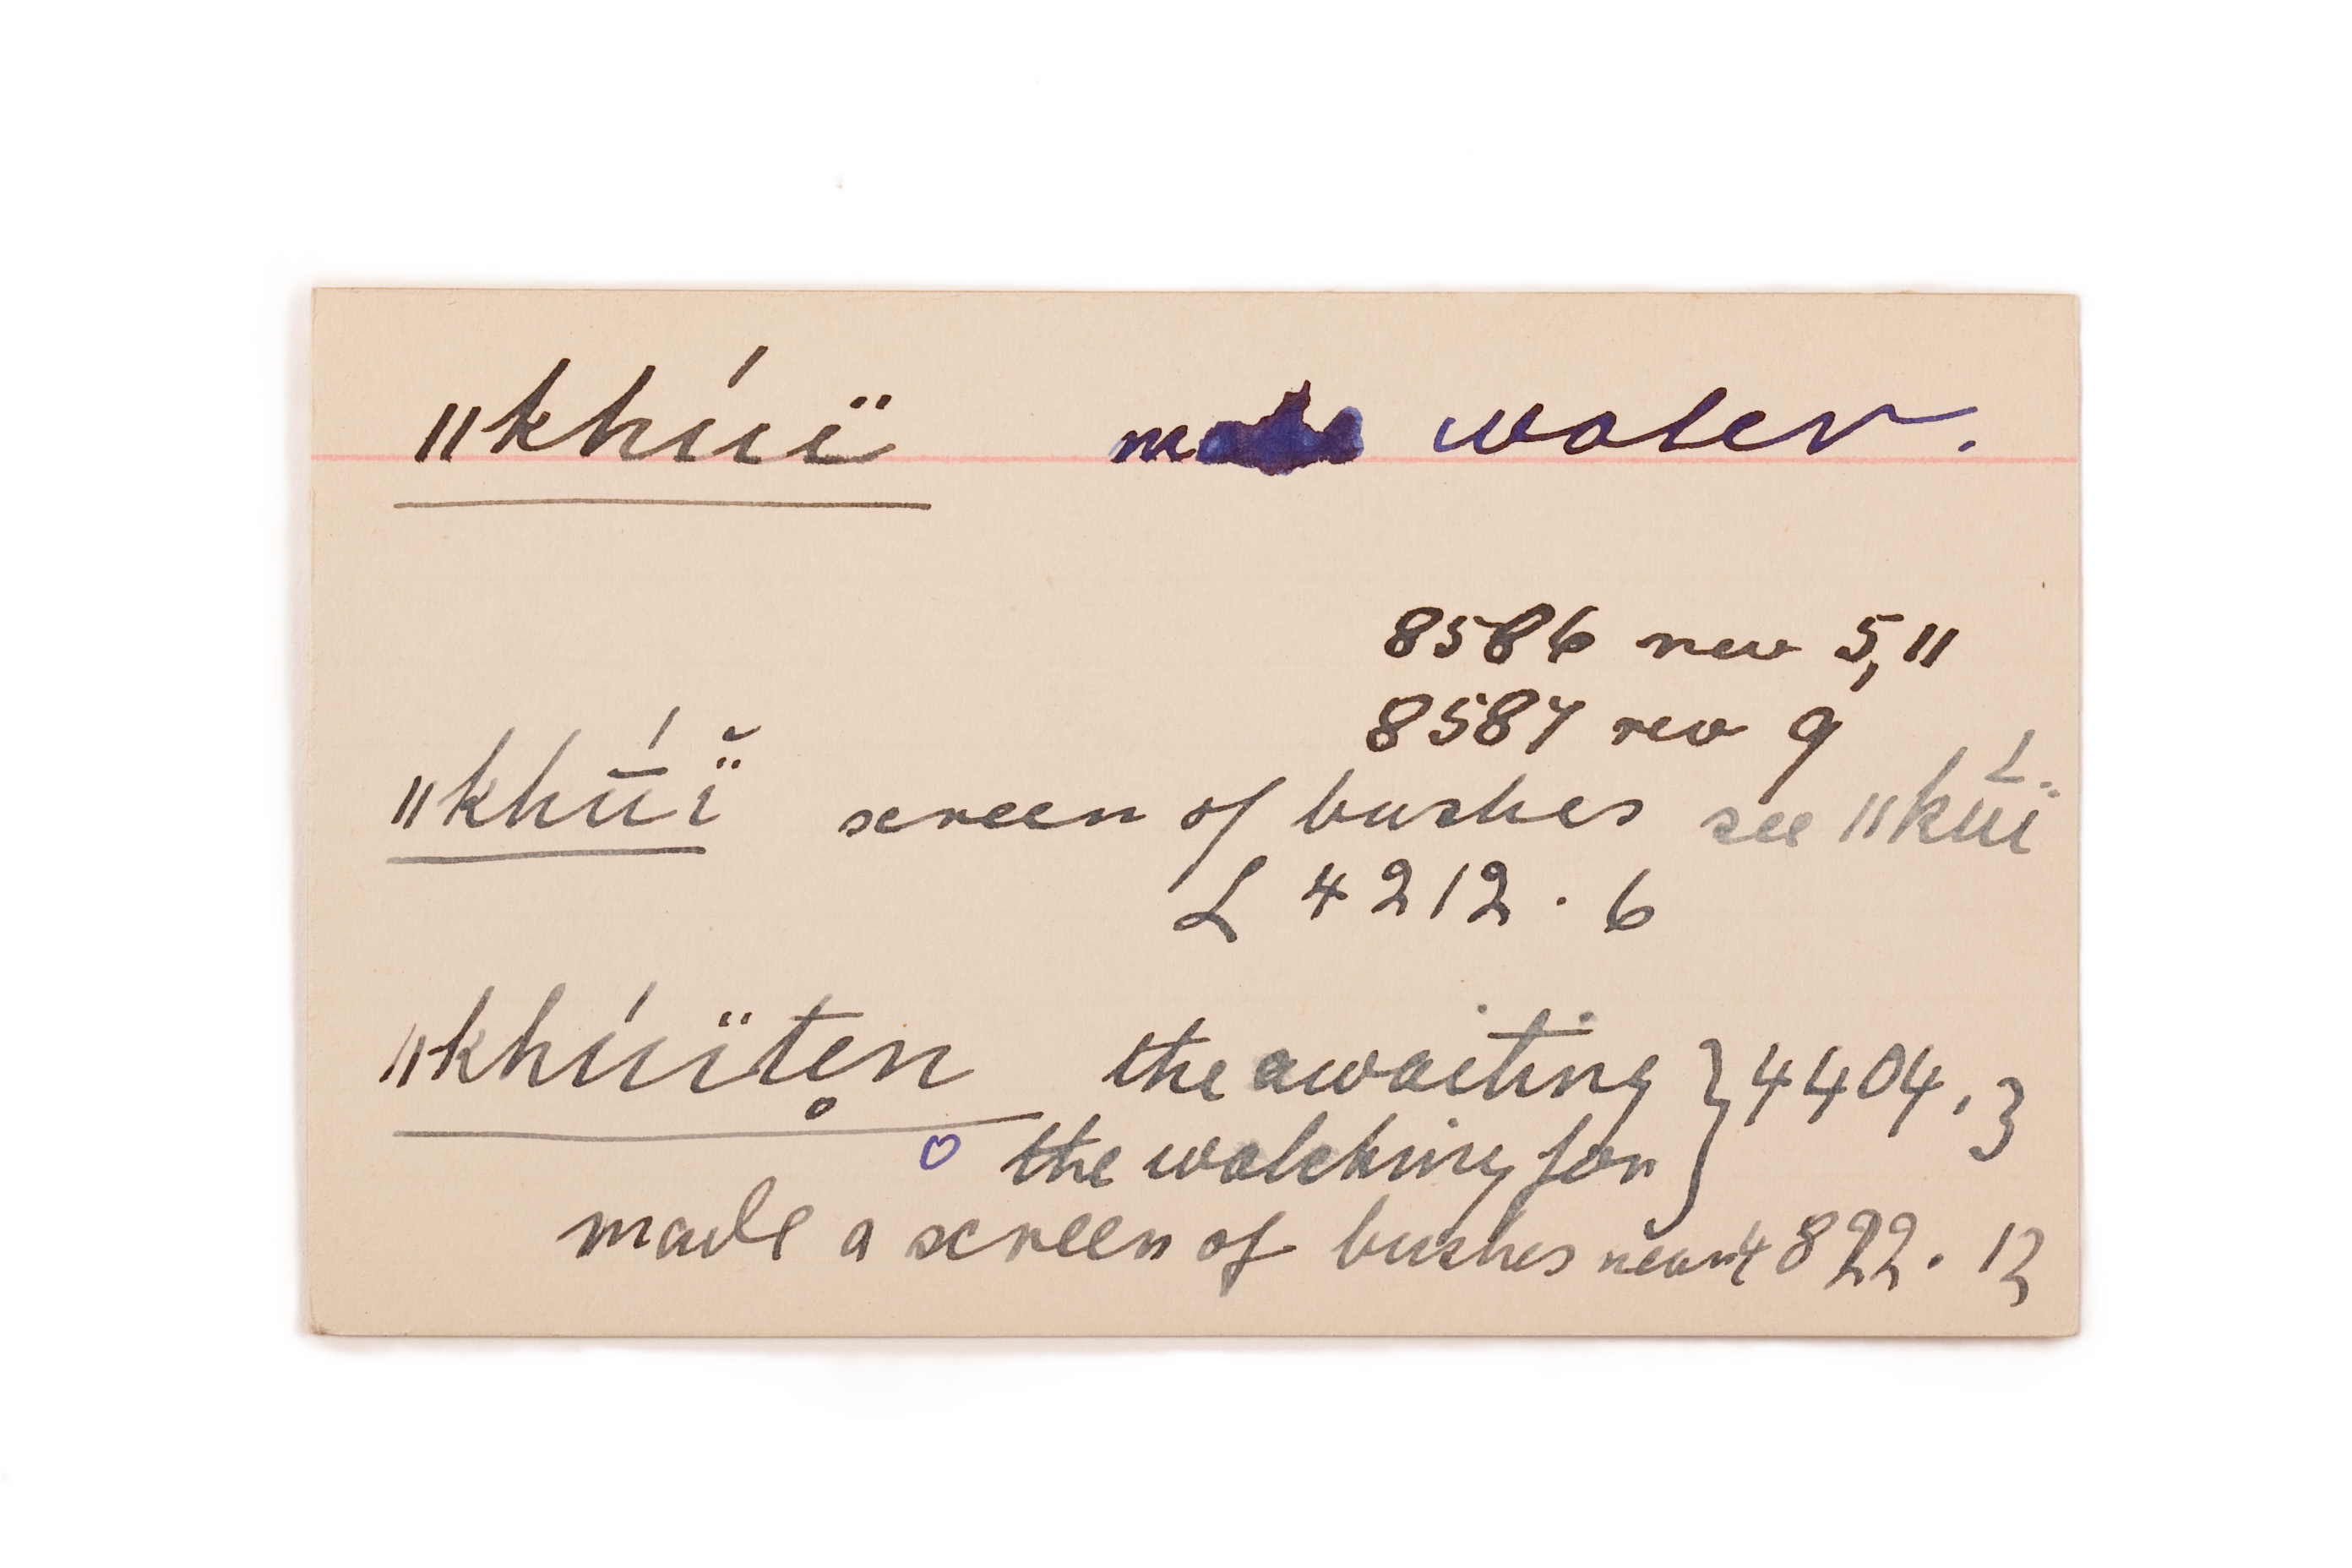 ǁkhúï make water.
8586 rev 5,11
8587 rev 9
ǁkhū́ï̆ screen of bushes see ǁkū́ï
L 4212 . 6
ǁkhúïte̥n the awaiting } 4404, 3
the watching for
made a screen of bushes near 4822. 13